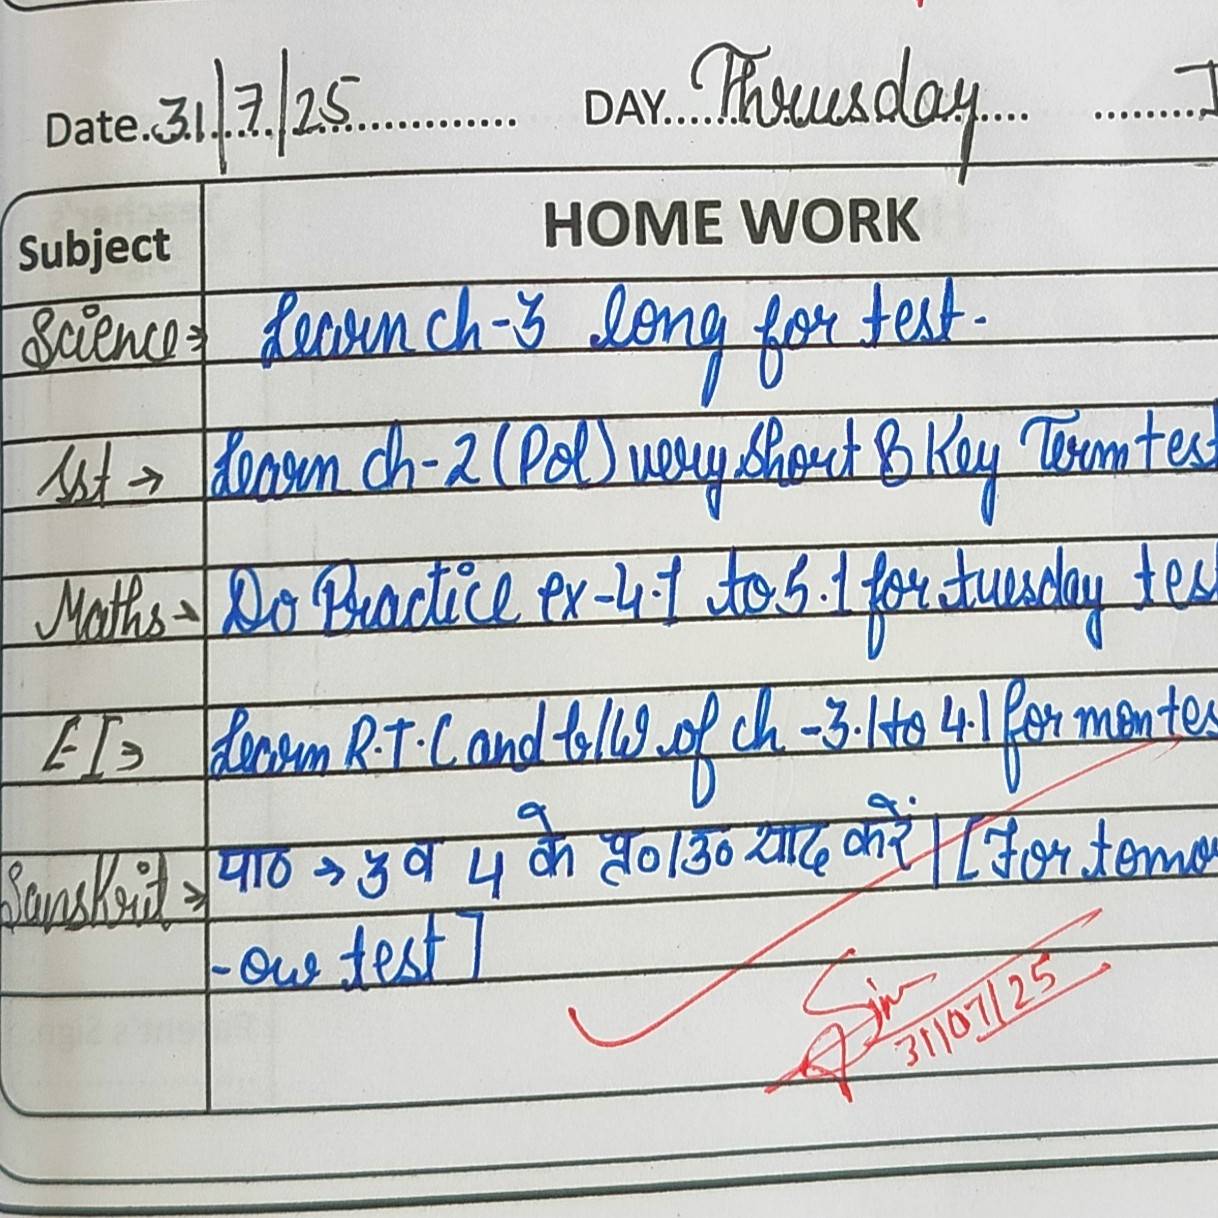 Date.31/7/25 DAY Thrusday
Subject HOME WORK
Science → Learn ch-3 long for test.
Sst → Learn ch-2 (Pol) very short & Key Term test
Maths → Do Practice ex-4.1 to 5.1 for tuesday tes
EI → Learn R.T.C and b/w of ch-3.1 to 4.1 for mon tes
Sanskrit → पाठ → 3 व 4 के प्र०/उ० याद करें | [For tomo
-ow test]
31/07/25